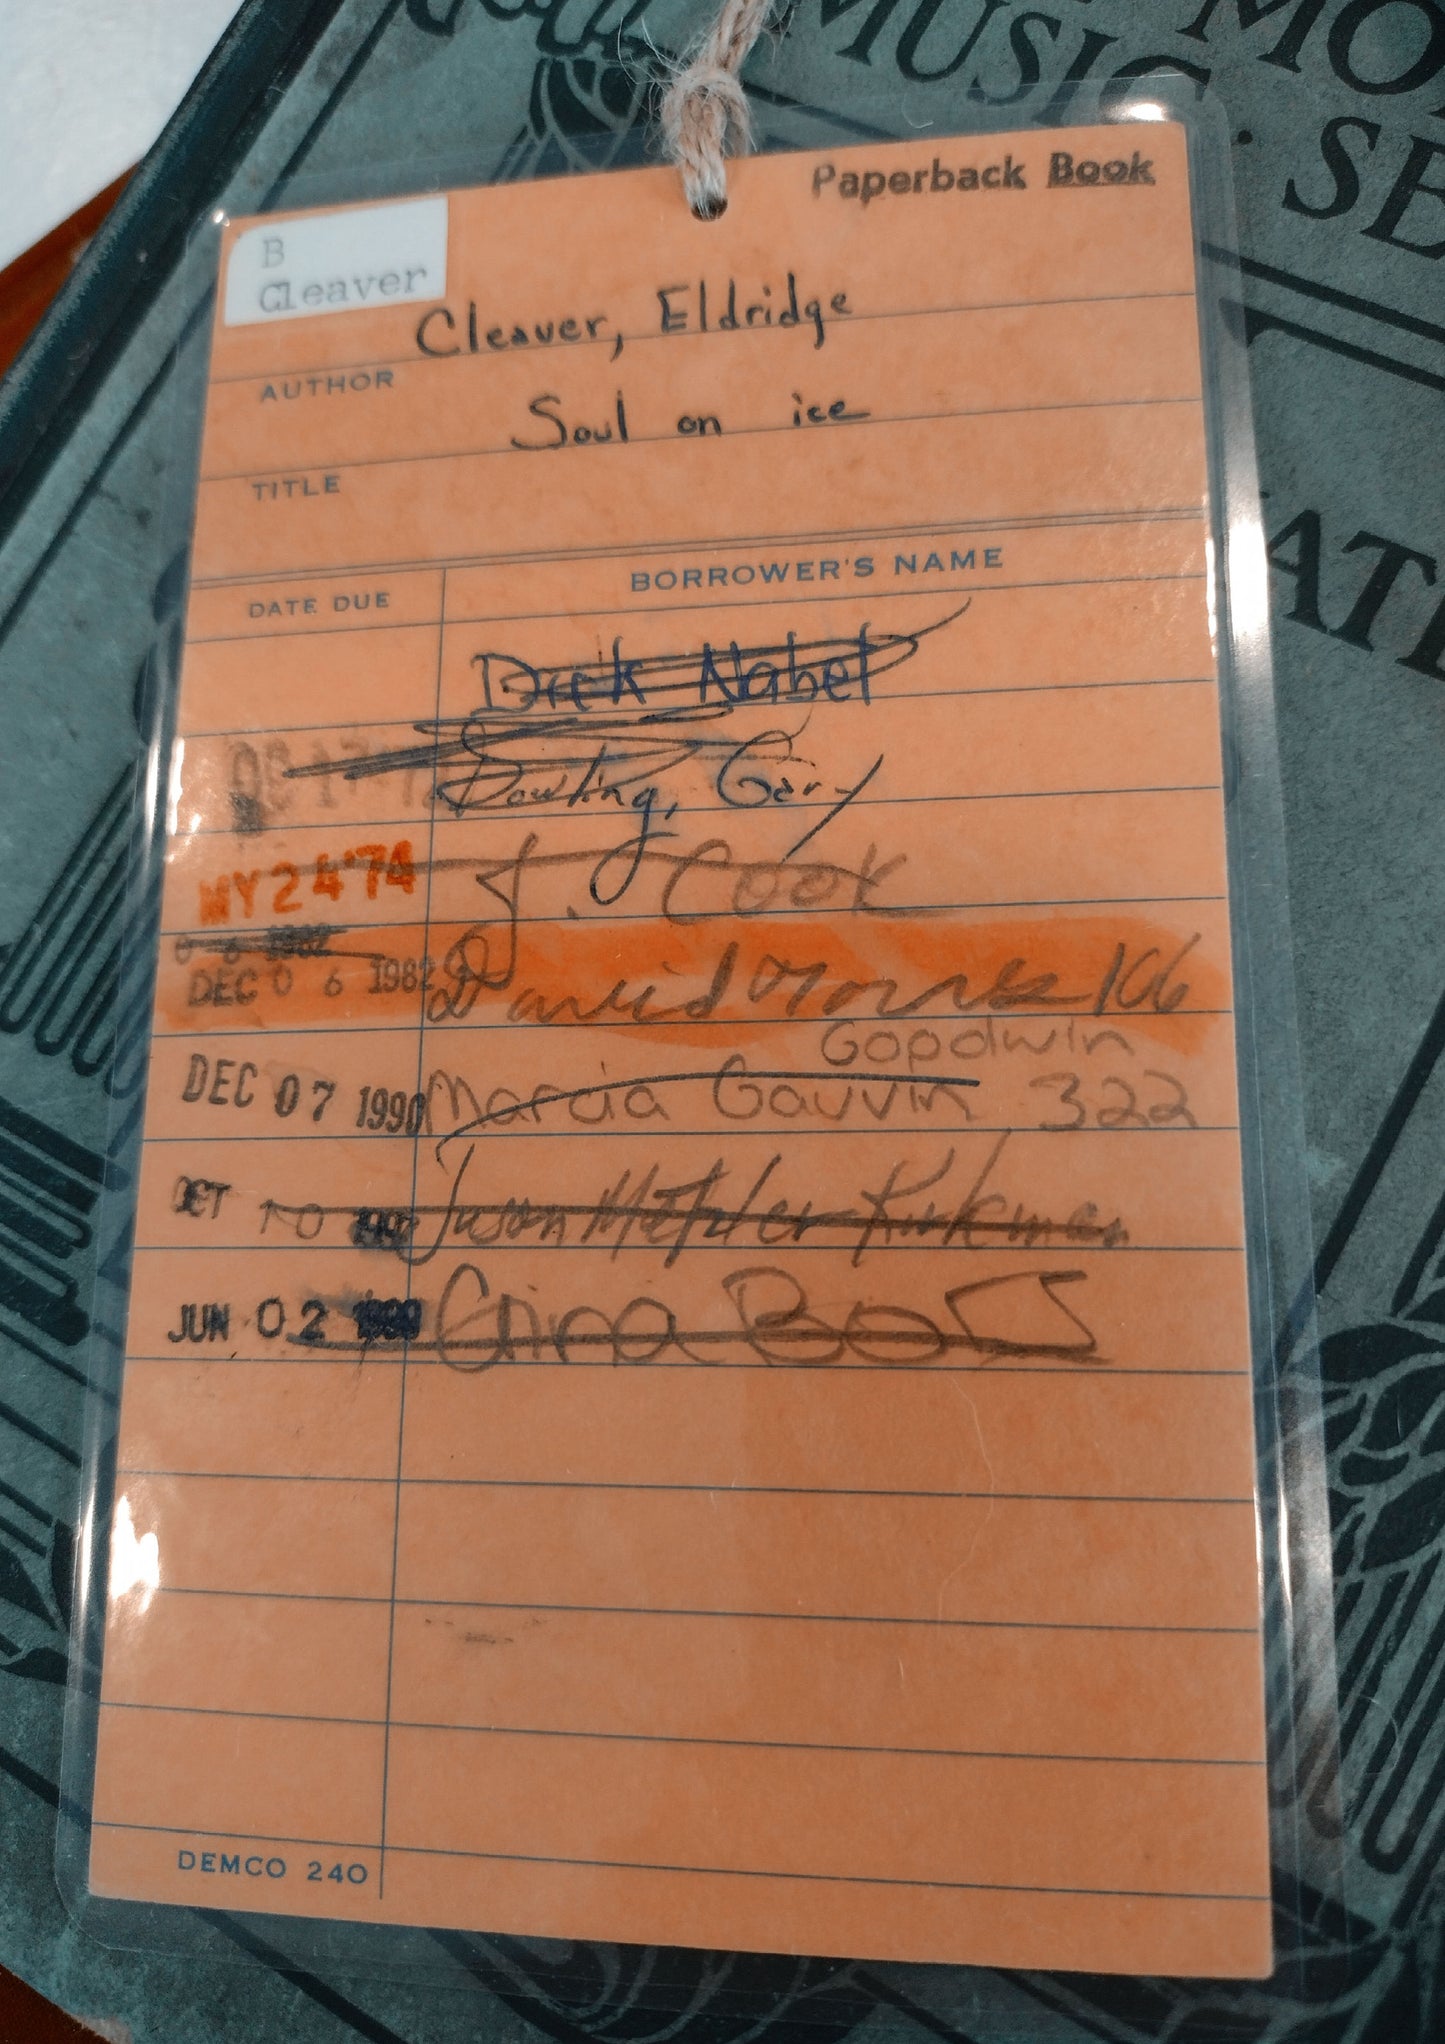 MUSIC
Paperback Book
B
Cleaver
Cleaver, Eldridge
AUTHOR
Soul on ice
TITLE
DATE DUE BORROWER'S NAME
Dick Nabel
Dowling, Gary
MY 24 '74 J. Cook
DEC 06 1982 David Morris 106
Goodwin
DEC 07 1990 Marcia Gauvin 322
OCT 10 Jason Metzler-Kirkeman
JUN 02 Gina
DEMCO 240